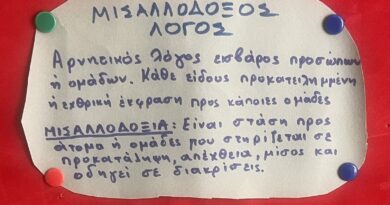 ΜΙΣΑΛΛΟΔΟΞΟΣ
ΛΟΓΟΣ
Αρνητικός λόγος εις βάρος προσώπων
ή ομάδων. Κάθε είδους προκατειλημμένη
ή εχθρική έκφραση προς κάποιες ομάδες
ΜΙΣΑΛΛΟΔΟΞΙΑ: Είναι στάση προς
άτομα ή ομάδες που στηρίζεται σε
προκατάληψη, απέχθεια, μίσος και
οδηγεί σε διακρίσεις.